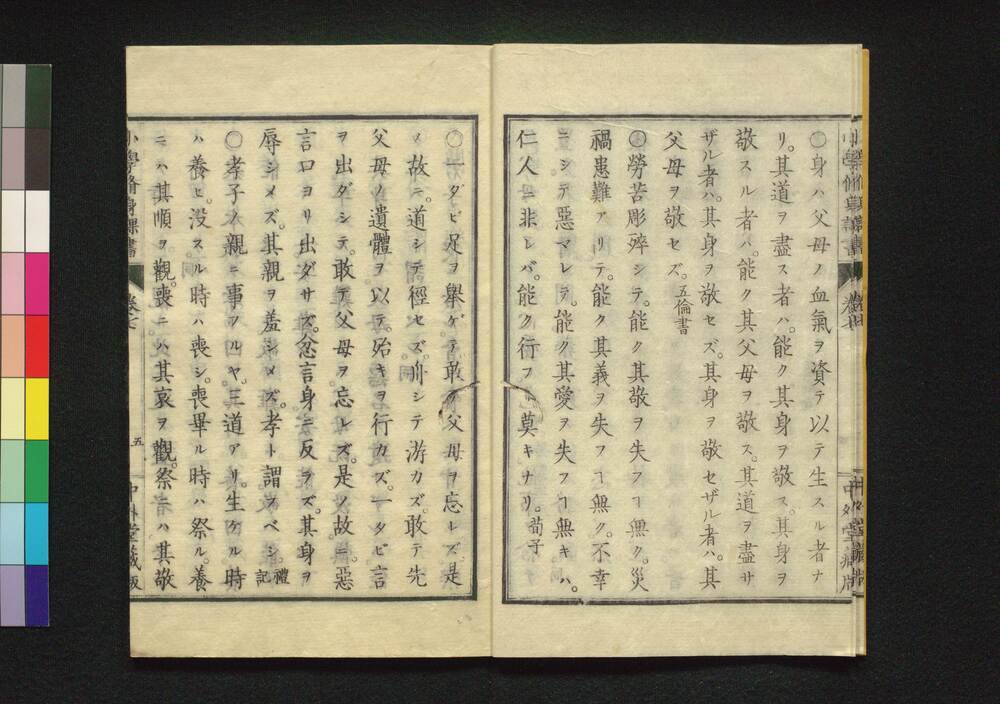 〇身ハ父母ノ血氣ヲ資テ以テ生スル者ナ
リ。其道ヲ盡ス者ハ。能ク其身ヲ敬ス。其身ヲ
敬スル者ハ。能ク其父母ヲ敬ス。其道ヲ盡サ
ザル者ハ。其身ヲ敬セズ。其身ヲ敬セザル者ハ。其
父母ヲ敬セズ。五倫書
〇勞苦彫瘁シテ。能ク其敬ヲ失フヿ無ク。災
禍患難アリテ。能ク其義ヲ失フヿ無ク。不幸
ニシテ惡マレテ。能ク其愛ヲ失フヿ無キハ。
仁人ニ非レバ。能ク行フヿ莫キナリ。荀子
〇一タビ足ヲ舉ゲテ敢テ父母ヲ忘レズ。是
ノ故ニ。道シテ。徑セズ。舟シテ游カズ。敢テ先
父母ノ遺體ヲ以テ。殆キヲ行カズ。一タビ言
ヲ出ダシテ。敢テ父母ヲ忘レズ。是ノ故ニ。惡
言口ヨリ出ダサズ。忿言身ニ反ラズ。其身ヲ
辱シメズ。其親ヲ羞シメズ。孝ト謂フベシ。禮記
〇孝子ノ親ニ事フルヤ。三道アリ。生ケル時
ハ養ヒ。没スル時ハ喪シ。喪畢ル時ハ祭ル。養
ニハ其順ヲ觀。喪ニハ其哀ヲ觀。祭ニハ其敬
小學脩身課書
卷七
五
中外堂藏版